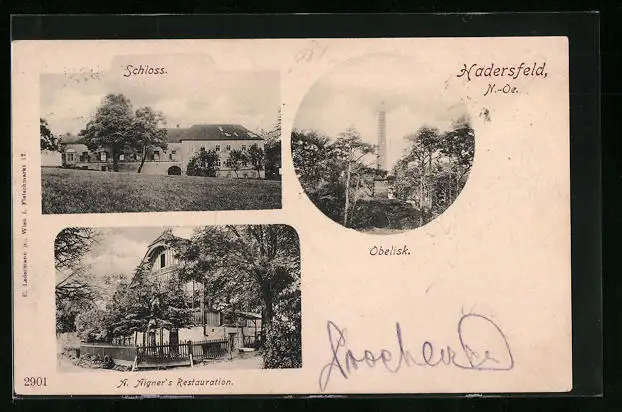 Schloss.
Hadersfeld,
N.-Oe.
Obelisk.
A. Aigner's Restauration.
2901
C. Ledermann jr. Wien I. Fleischmarkt 12